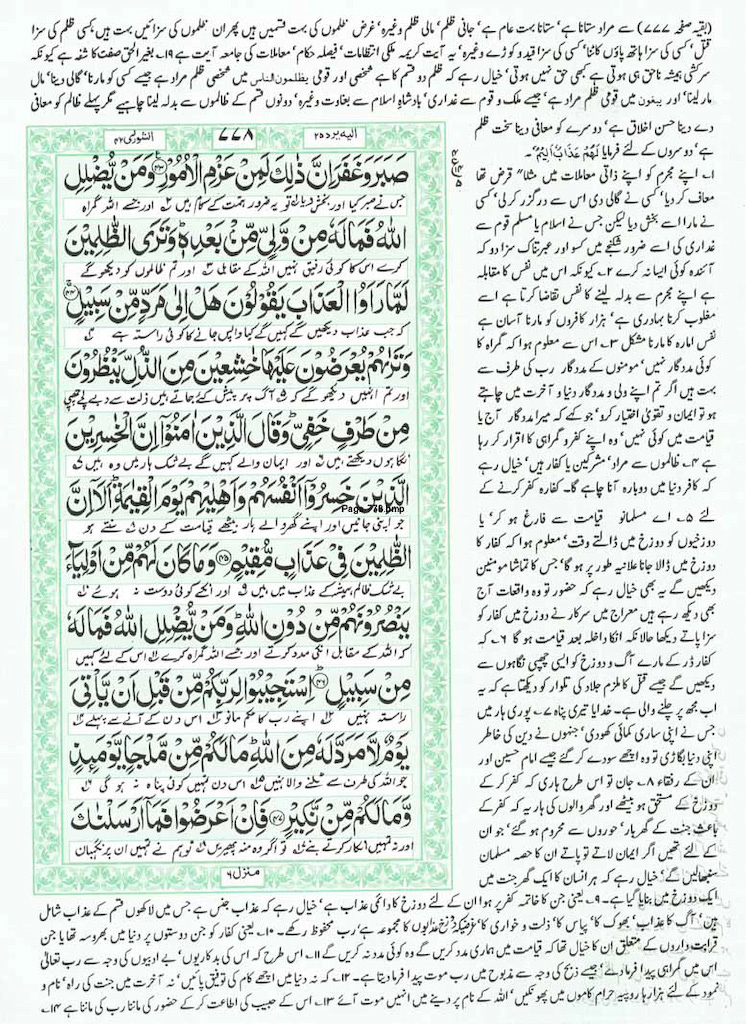 (بقیہ صفحہ ۷۷۷) سے مراد ستانا ہے' ستانا بہت عام ہے' جانی ظلم' مالی ظلم وغیرہ' غرض ظلموں کی بہت قسمیں ہیں پھر ان ظلموں کی سزائیں بہت ہیں' کسی ظلم کی سزا
قتل' کسی کی سزا ہاتھ پاؤں کاٹنا' کسی کی سزا قید و کوڑے وغیرہ' یہ آیت کریمہ ملکی انتظامات' فیصلہ حکام' معاملات کی جامعہ آیت ہے ۱۹۔ بغیر الحق صفت کاشفہ ہے کیونکہ
سرکشی ہمیشہ ناحق ہی ہوتی ہے کبھی حق نہیں ہوتی' خیال رہے کہ ظلم دو قسم کا ہے شخصی اور قومی یظلمون الناس میں شخصی ظلم مراد ہے جیسے کسی کو مارنا' گالی دینا' مال
مار لینا' اور یبغون میں قومی ظلم مراد ہے' جیسے ملک و قوم سے غداری' بادشاہ اسلام سے بغاوت وغیرہ' دونوں قسم کے ظالموں سے بدلہ لینا چاہیے مگر پہلے ظالم کو معافی
دے دینا حسن اخلاق ہے' دوسرے کو معافی دینا سخت ظلم
ہے' دوسروں کے لئے فرمایا لَهُمْ عَذَابٌ اَلِيْمٌ۔
۱۔ اپنے مجرم کو اپنے ذاتی معاملات میں مثلاً" قرض تھا
معاف کر دیا' کسی نے گالی دی اس سے درگزر کر لی' کسی
نے مارا اسے بخش دیا لیکن جس نے اسلام یا مسلم قوم سے
غداری کی اسے ضرور شکنجے میں کسو اور عبرتناک سزا دو کہ
آئندہ کوئی ایسا نہ کرے ۲۔ کیونکہ اس میں نفس کا مقابلہ
ہے اپنے مجرم سے بدلہ لینے کا نفس تقاضا کرتا ہے اسے
مغلوب کرنا بہادری ہے' ہزار کافروں کو مارنا آسان ہے
نفس امارہ کا مارنا مشکل ۳۔ اس سے معلوم ہوا کہ گمراہ کا
کوئی مددگار نہیں' مومنوں کے مددگار رب کی طرف سے
بہت ہیں اگر تم اپنے ولی و مددگار دنیا و آخرت میں چاہتے
ہو تو ایمان و تقویٰ اختیار کرو' جو کہے کہ میرا مددگار آج یا
قیامت میں کوئی نہیں' وہ اپنے کفر و گمراہی کا اقرار کر رہا
ہے ۴۔ ظالموں سے مراد' مشرکین یا کفار ہیں' خیال رہے
کہ کافر دنیا میں دوبارہ آنا چاہے گا۔ کفارہ کفر کرنے کے
لئے ۵۔ اے مسلمانو قیامت سے فارغ ہو کر' یا
دوزخیوں کو دوزخ میں ڈالتے وقت' معلوم ہوا کہ کفار کا
دوزخ میں ڈالا جانا علانیہ طور پر ہو گا' جس کا تماشا مومنین
دیکھیں گے یہ بھی خیال رہے کہ حضور تو وہ واقعات آج
بھی دیکھ رہے ہیں معراج میں سرکار نے دوزخ میں کفار کو
سزا پاتے دیکھا حالانکہ انکا داخلہ بعد قیامت ہو گا ۶۔ کہ
کفار ڈر کے مارے آگ و دوزخ کو ایسی چھپی نگاہوں سے
دیکھیں گے جیسے قتل کا ملزم جلاد کی تلوار کو دیکھتا ہے کہ یہ
اب مجھ پر چلنے والی ہے۔ خدایا تیری پناہ ۷۔ پوری ہار میں
جس نے اپنی ساری کمائی کھو دی' جنہوں نے دین کی خاطر
اپنی دنیا بگاڑی تو وہ اچھے سودے کر گئے جیسے امام حسین اور
ان کے رفقاء ۸۔ جان تو اس طرح ہاری کہ کفر کر کے
دوزخ کے مستحق ہو بیٹھے اور گھر والوں کی ہار یہ کہ کفر کے
باعث جنت کے گھربار' حوروں سے محروم ہو گئے' جو ان
کے لئے تھیں اگر ایمان لاتے تو پاتے ان کا حصہ مسلمان
سنبھالیں گے' خیال رہے کہ ہر انسان کا ایک گھر جنت میں
الیہ یرد ۲۵ ۷۷۸ الشوریٰ ۴۲
صَبَرَ وَغَفَرَ اِنَّ ذٰلِكَ لَمِنْ عَزْمِ الْاُمُوْرِ ﴿۴۳﴾ وَمَنْ يُّضْلِلِ
جس نے صبر کیا اور بخش دیا تو یہ ضرور ہمت کے کام ہیں اور جسے اللہ گمراہ
اللّٰهُ فَمَا لَهٗ مِنْ وَّلِيٍّ مِّنْۢ بَعْدِهٖ ؕ وَتَرَى الظّٰلِمِيْنَ
کرے اس کا کوئی رفیق نہیں اللہ کے مقابل اور تم ظالموں کو دیکھو گے
لَمَّا رَاَوُا الْعَذَابَ يَقُوْلُوْنَ هَلْ اِلٰى مَرَدٍّ مِّنْ سَبِيْلٍ ﴿۴۴﴾
کہ جب عذاب دیکھیں گے کہیں گے کیا واپس جانے کا کوئی راستہ ہے
وَتَرٰىهُمْ يُعْرَضُوْنَ عَلَيْهَا خٰشِعِيْنَ مِنَ الذُّلِّ يَنْظُرُوْنَ
اور تم انہیں دیکھو گے کہ آگ پر پیش کئے جاتے ہیں ذلت سے دبے لچے چھپی
مِنْ طَرْفٍ خَفِيٍّ ؕ وَقَالَ الَّذِيْنَ اٰمَنُوْۤا اِنَّ الْخٰسِرِيْنَ
نگاہوں دیکھتے ہیں اور ایمان والے کہیں گے بے شک ہار میں وہ ہیں
الَّذِيْنَ خَسِرُوْۤا اَنْفُسَهُمْ وَاَهْلِيْهِمْ يَوْمَ الْقِيٰمَةِ ؕ اَلَاۤ اِنَّ
Page-778.bmp
جو اپنی جانیں اور اپنے گھر والے ہار بیٹھے قیامت کے دن سنتے ہو
الظّٰلِمِيْنَ فِيْ عَذَابٍ مُّقِيْمٍ ﴿۴۵﴾ وَمَا كَانَ لَهُمْ مِّنْ اَوْلِيَآءَ
بے شک ظالم ہمیشہ کے عذاب میں ہیں اور انکے کوئی دوست نہ ہوئے
يَنْصُرُوْنَهُمْ مِّنْ دُوْنِ اللّٰهِ ؕ وَمَنْ يُّضْلِلِ اللّٰهُ فَمَا لَهٗ
کہ اللہ کے مقابل انکی مدد کرتے اور جسے اللہ گمراہ کرے اس کے لئے کہیں
مِنْ سَبِيْلٍ ﴿۴۶﴾ اِسْتَجِيْبُوْا لِرَبِّكُمْ مِّنْ قَبْلِ اَنْ يَّاْتِيَ
راستہ نہیں اپنے رب کا حکم مانو اس دن کے آنے سے پہلے
يَوْمٌ لَّا مَرَدَّ لَهٗ مِنَ اللّٰهِ ؕ مَا لَكُمْ مِّنْ مَّلْجَاٍ يَّوْمَئِذٍ
جو اللہ کی طرف سے ٹلنے والا نہیں اس دن تمہیں کوئی پناہ نہ ہو گی
وَّمَا لَكُمْ مِّنْ نَّكِيْرٍ ﴿۴۷﴾ فَاِنْ اَعْرَضُوْا فَمَاۤ اَرْسَلْنٰكَ
اور نہ تمہیں انکار کرتے بنے تو اگر وہ منہ پھیریں تو ہم نے تمہیں ان پر نگہبان
منزل ۶
ایک دوزخ میں بنایا گیا ہے۔ ۹۔ یعنی جن کا خاتمہ کفر پر ہوا ان کے لئے دوزخ کا دائمی عذاب ہے' خیال رہے کہ عذاب جنس ہے جس میں لاکھوں قسم کے عذاب شامل
ہیں' آگ کا عذاب' بھوک کا' پیاس کا' ذلت و خواری کا' غرضیکہ دوزخ عذابوں کا مجموعہ ہے' رب محفوظ رکھے۔ ۱۰۔ یعنی کفار کو جن دوستوں پر دنیا میں بھروسہ تھا یا جن
قرابت داروں کے متعلق ان کا خیال تھا کہ قیامت میں ہماری مدد کریں گے وہ کوئی مدد نہ کریں گے ۱۱۔ اس طرح کہ اس کی بدکاریوں' بے ادبیوں کی وجہ سے رب تعالیٰ
اس میں گمراہی پیدا فرما دے' جیسے ذبح کی وجہ سے مذبوح میں رب موت پیدا فرما دیتا ہے۔ ۱۲۔ کہ نہ دنیا میں اچھے کام کی توفیق پائیں' نہ آخرت میں جنت کی راہ' نام و
نمود کے لئے ہزارہا روپیہ حرام کاموں میں پھونکیں' اللہ کے نام پر دینے میں انہیں موت آئے ۱۳۔ اس کے حبیب کی اطاعت کر کے حضور کی ماننا رب کی ماننا ہے ۱۴۔